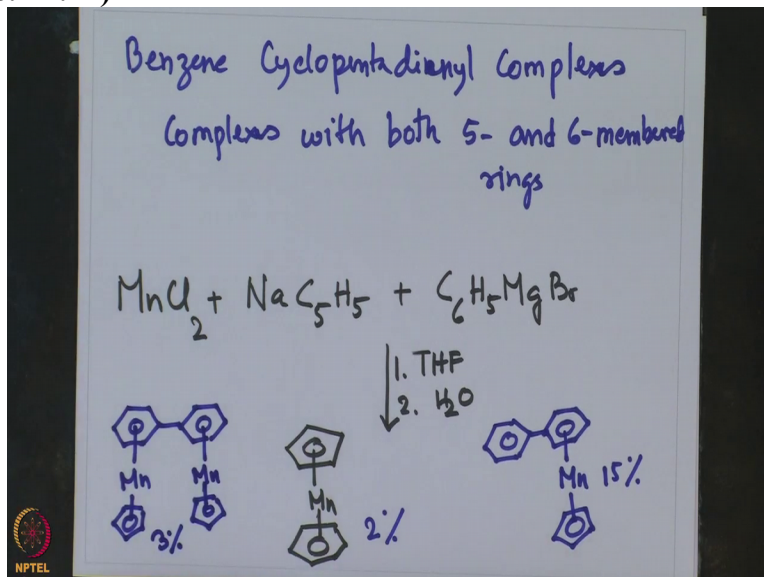 Benzene Cyclopentadienyl Complexes
Complexes with both 5- and 6-membered
rings
MnCl2 + NaC5H5 + C6H5MgBr
1. THF
2. H2O
Mn Mn
3%
Mn
2%
Mn 15%
NPTEL